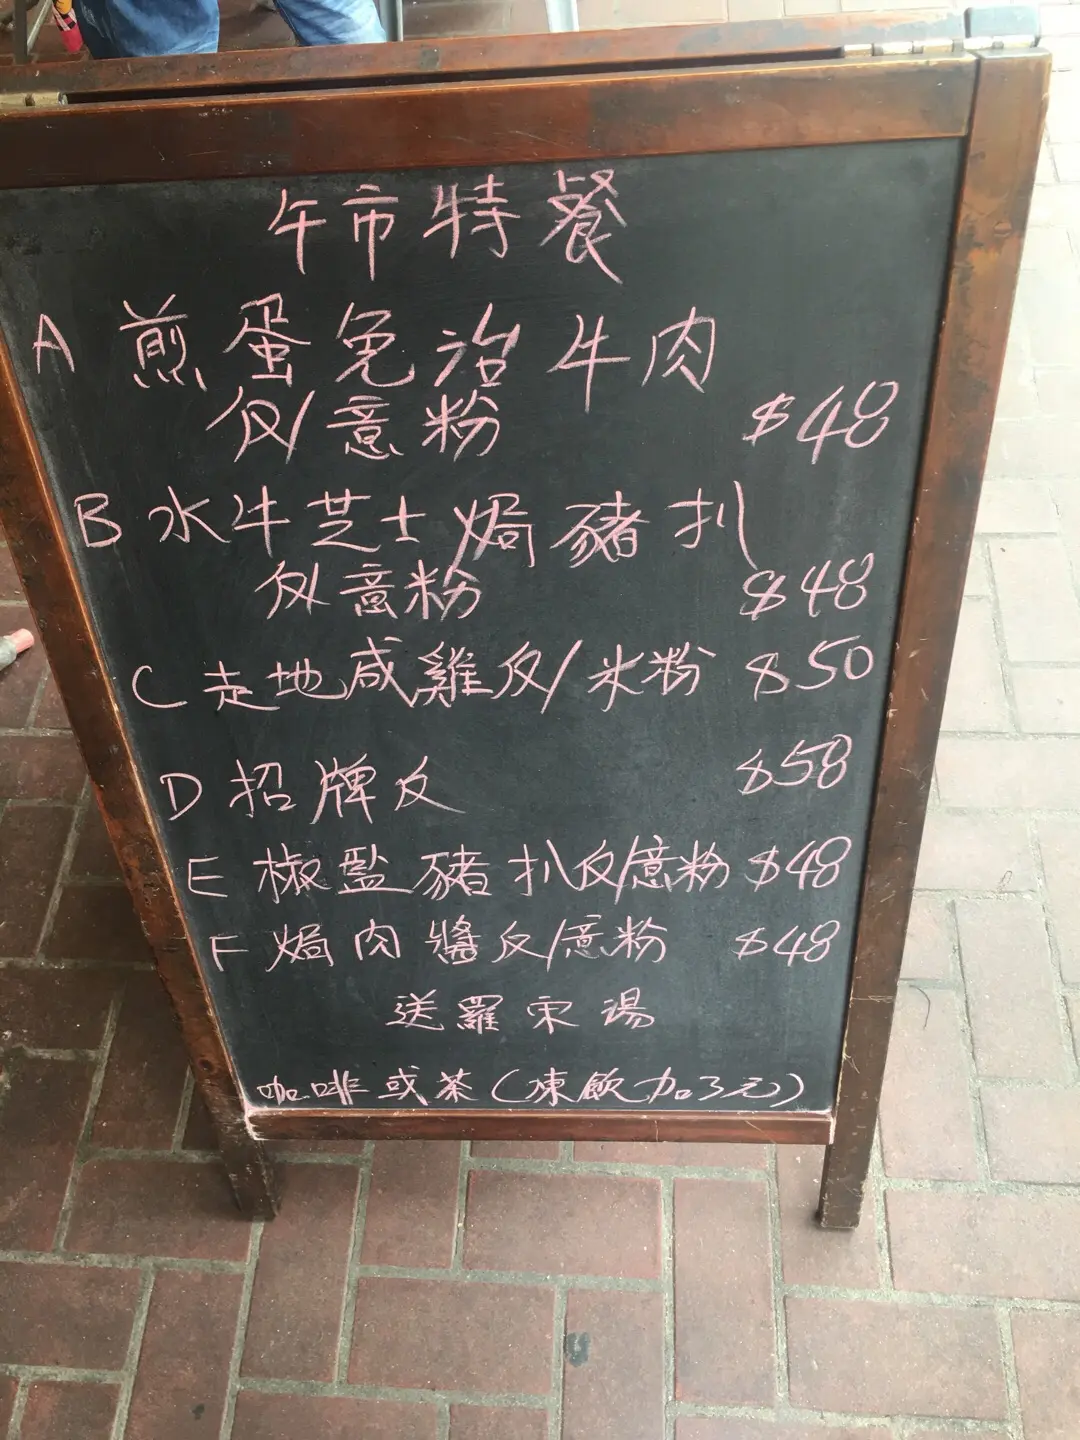 午市特餐
A 煎蛋免治牛肉
反/意粉 $48
B 水牛芝士焗豬扒
反/意粉 $48
C 走地咸雞反/米粉 $50
D 招牌反 $58
E 椒盐豬扒反/意粉 $48
F 焗肉醬反/意粉 $48
送羅宋湯
咖啡或茶(凍飲加3元)